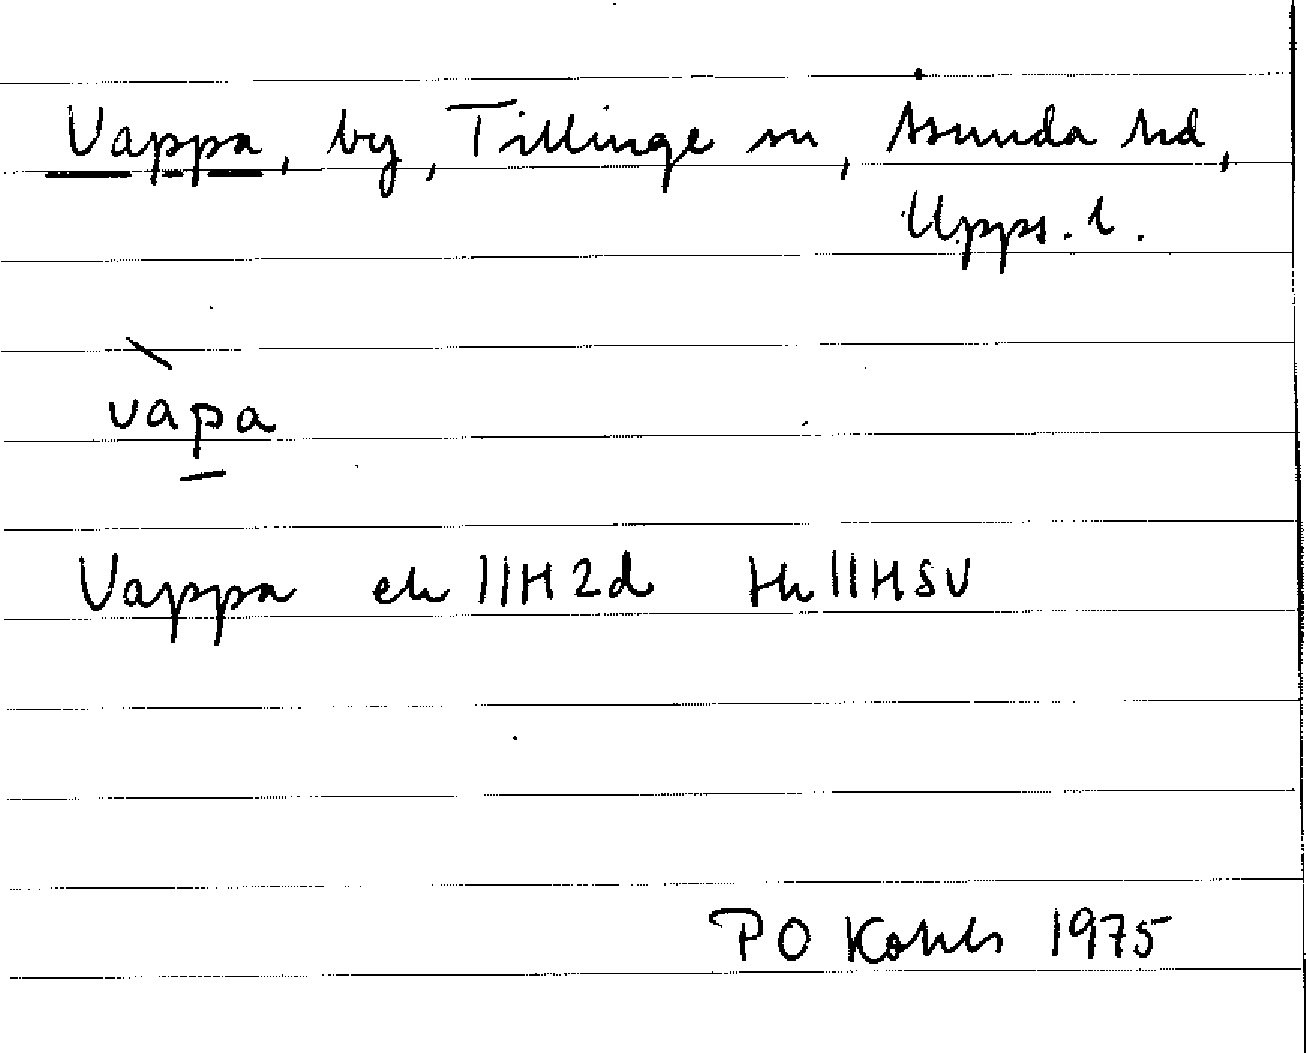 Vappa, by, Tillinge sn, Åsunda hd,
Upps. l.
vàpa
Vappa ek 11H2d Hk 11HSV
PO 1975